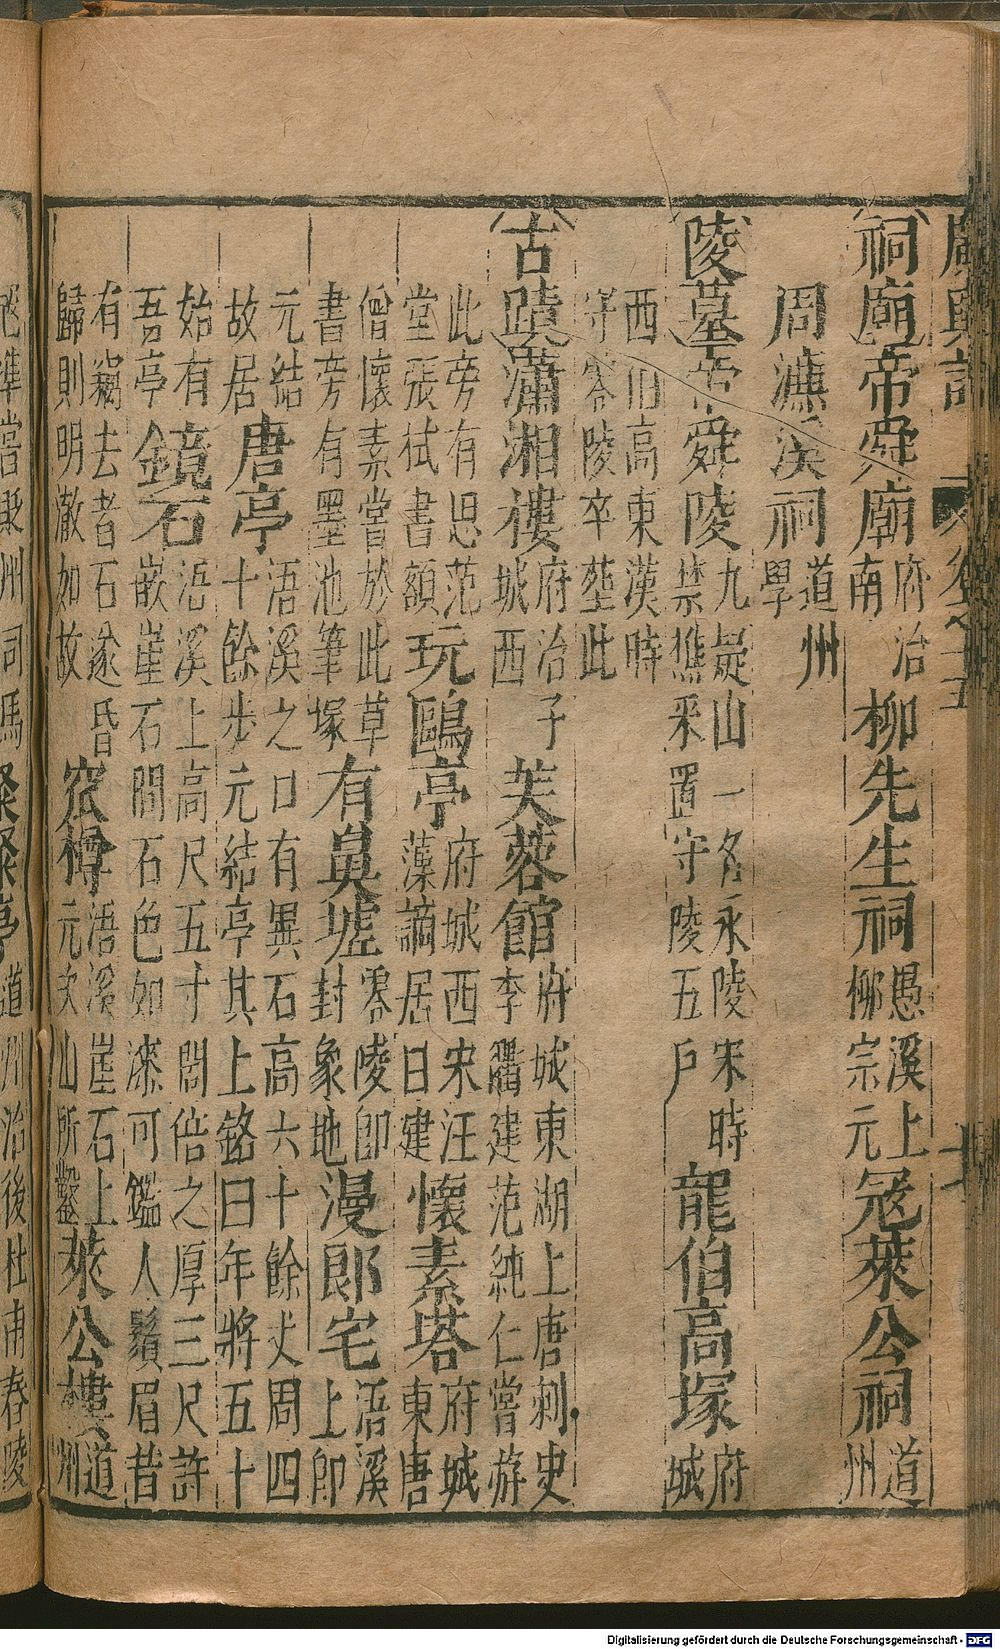 廣輿記 卷之十五
祠廟 帝舜廟 府治南 柳先生祠 愚溪上柳宗元 冦萊公祠 道州
周濂溪祠 道州學
陵墓 帝舜陵 九疑山一名永陵宋時禁樵采置守陵五戶 龍伯高塚 府城
西伯高東漢時守零陵卒塟此
古蹟 瀟湘樓 府治子城西 芙蓉館 府城東湖上唐刺史李衢建范純仁嘗游
此旁有思范堂張栻書額 玩鷗亭 府城西宋汪藻謫居日建 懷素塔 府城東唐
僧懷素嘗於此草書旁有墨池筆塚 有鼻墟 零陵即封象地 漫郎宅 浯溪上即
元結故居 唐亭 浯溪之口有異石高六十餘丈周四十餘步元結亭其上銘曰年將五十
始有吾亭 鏡石 浯溪上高尺五寸闊倍之厚三尺許嵌崖石間石色如漆可鑑人鬚眉昔
有竊去者石遂昏歸則明澈如故 窊樽 浯溪崖石上元次山所鑿 萊公樓 道州
準嘗 州司馬 粲粲亭 道州治後杜甫舂陵
Digitalisierung gefördert durch die Deutsche Forschungsgemeinschaft - DFG